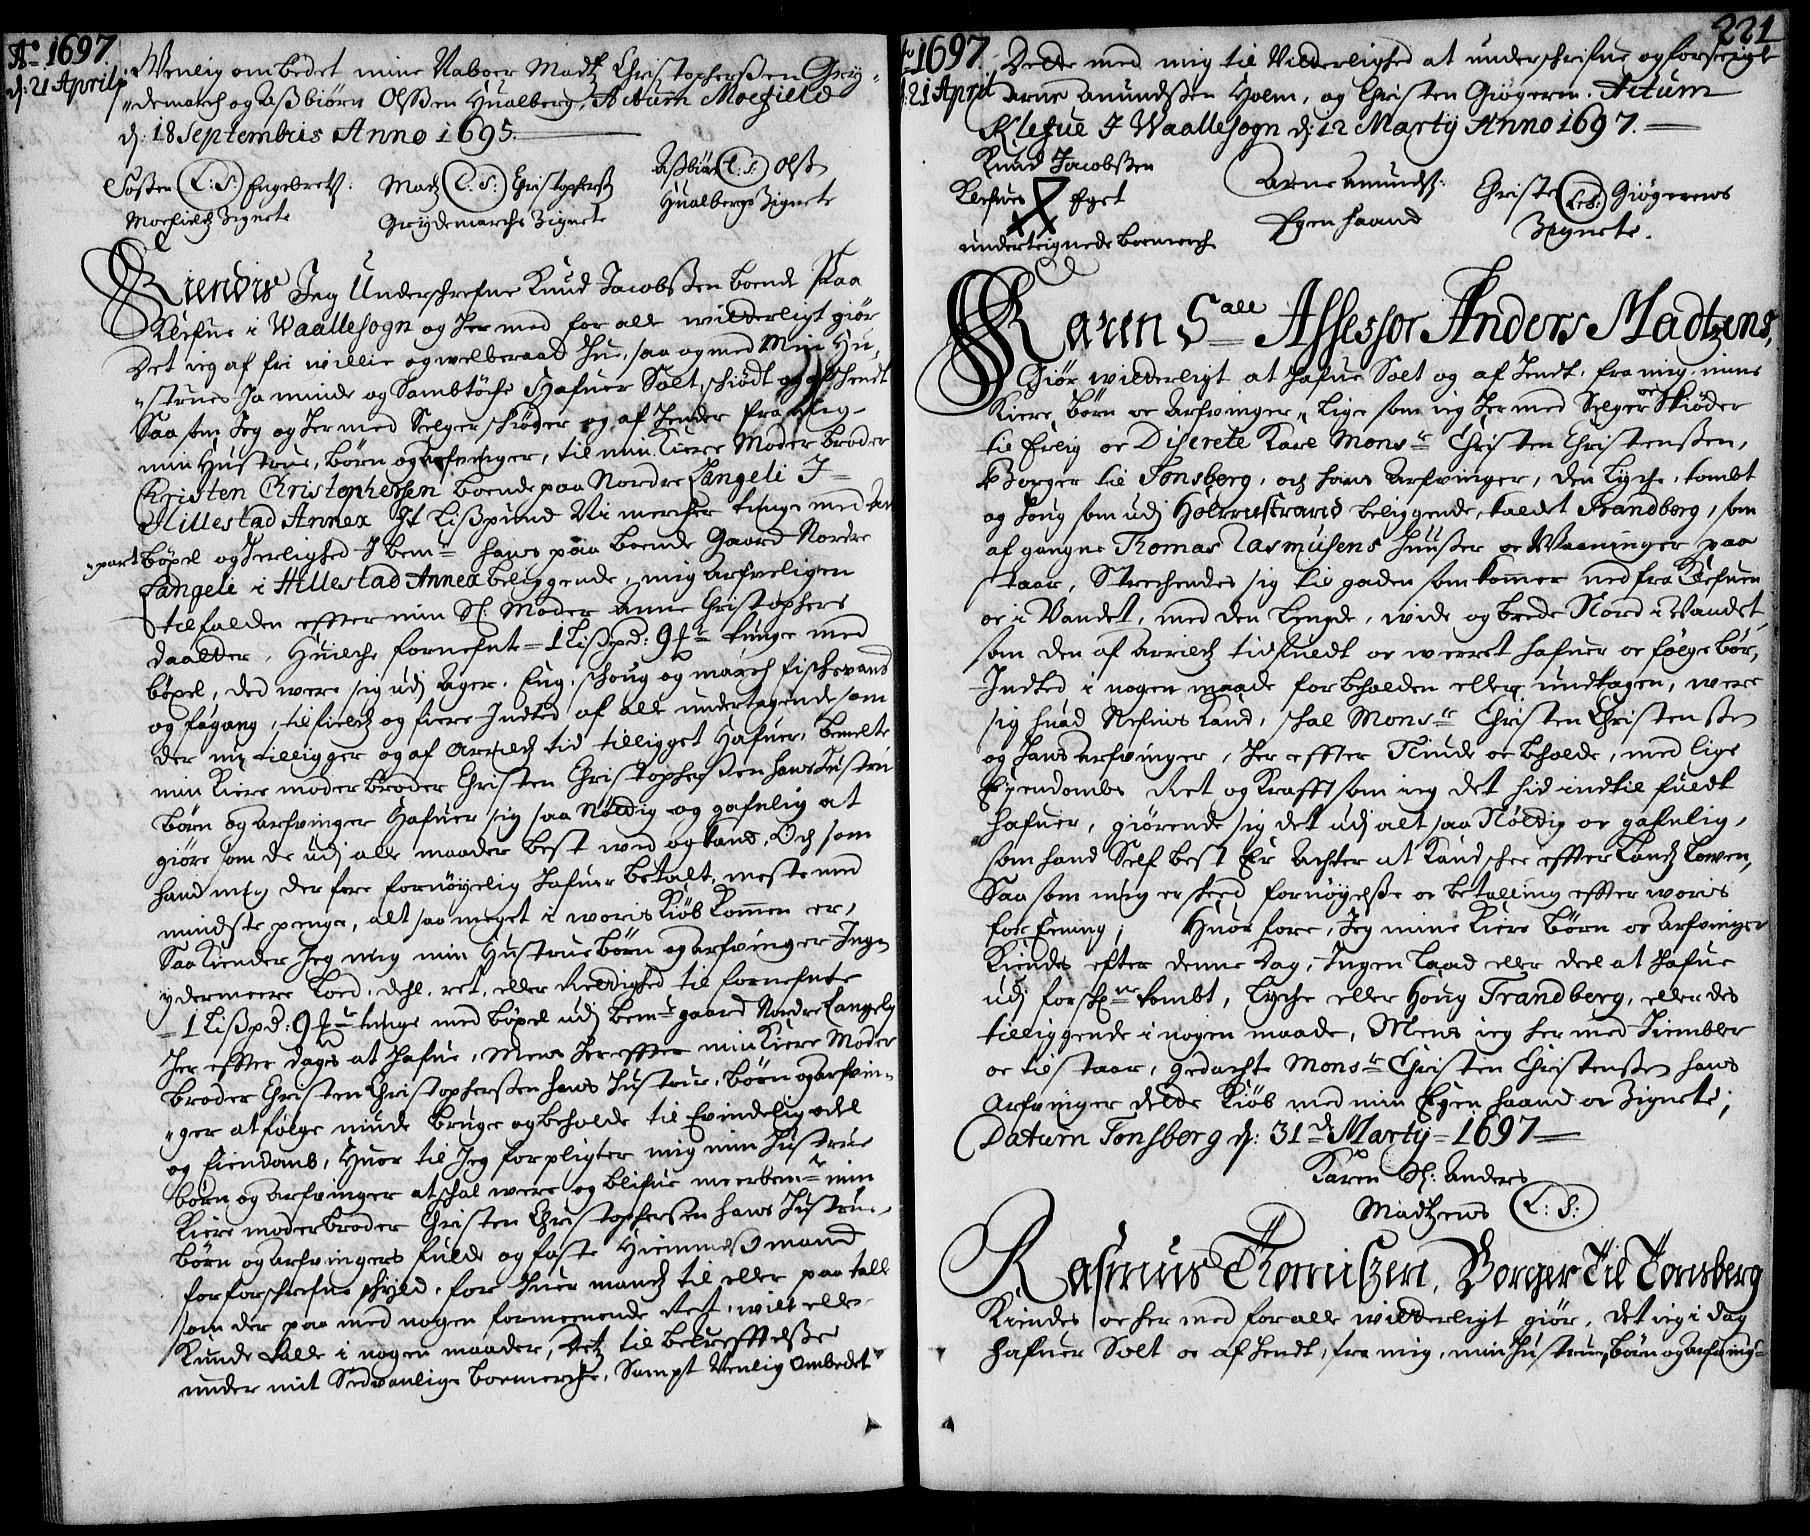 Ao 1697.
d: 21 Aprilj
Wenlig ombedet mine Naboer Madtz Christophersen Grey-
"demarch og Aßbiörn Olßen Hualberg, Actum Moefield
d: 18 Septembris Anno 1695.
Soffren (L:S:) Engebretz:
Moefieldtz Zignete
Madz (L:S:) Christophersz
Greydemarchs Zignete
Aßbiörn (L:S:) Olß
Hualbergs Zignete
Kiendis Jeg Underschrefne Knud Jacobßen boende Paa
Klefue i Waallesogn og Her med for alle witterligt giör
Det ieg af fri willie og welberaad Hu, saa og med Min Hu-
"strues Ja minde og Sambtöche Hafuer Solt, schiödt og afhendt
Saa som Jeg og Her med Selger schiöder og af Hender fra Mig
min Hustrue, börn og arfvinger, til min Kiere Moder broder
Christen Christophersen boende paa Nordre Langeli I
Hillestad Annex Et Lißpund Ni mercher tunge med
"part böxel og Herlighed I bemte hans paa boende Gaard Nordre
Langeli i Hillestad Annex beliggende, mig arfveligen
tilfalden effter min Sl: Moder Anne Christophers
daatter, Huilche fornefnte 1 Lißpd: 9 tunge med
böxel, ded were sig udj ager, Eng, schoug og march fischevand
og fægang, til fieldz og fiere Indted af alt undertagende som
der nu tilligger og af Arrildz tid tilligget Hafuer, bemelte
min Kiere moder broder Christen Christophersen hans Hustru
börn og arfvinger Hafuer sig saa Nöttig og gafnlig at
giöre som de udj alle maader best weed og kand, Och som
hand mig der fore fornöyelig Hafuer betalt, meste med
mindste penge, alt saa meget i woris Kiöb Kommen er,
Saa Kiender Jeg mig min Hustrue börn og arfvinger Ingen
ydermeere Lod, dehl, ret, eller Rettighed til fornefnte
1 Lißpd: 9 tunge med böxel udj bemte gaard Nordre Langely
Her effter dags at Hafue, Mens Her effter min Kiere Moder
broder Christen Christophersen hans Hustrue, börn og arfvin-
"ger at følge niude bruge og beholde til Evindelig odel
og Eiendomb, Huor til Jeg forpligter mig min Hustrue
börn og arfvinger at schal were og blifue meerbemte min
Kiere moderbroder Christen Christophersen hans Hustrue,
börn og arfvingers fulde og faste Hiemmelsmand
for forschrefne schyld, for Huer mandz til eller paa talle
som der paa med nogen formeenende Ret, wil eller
Kunde Falle i nogen maader, Dets til bekreffttelße
under mit Sedvanlige boemerche, Sampt Venlig Ombedet
221
Ao 1697.
d: 21 April
Dette med mig til Vitterlighed at underschrifue og forseigle
Arne Amundßen Holm, og Christen Giögeren. Actum
Klefue I Waallesogn d: 12 Martij Anno 1697.
Knud Jacobßen
Klefues Eget
underteignede boemerche
Arne Amundsz:
Egen haand
Christe (L:S:) Giögerens
Zignete.
Karen Sall Assessor Anders Madtzens,
Giör witterligt at hafue Solt og af Hendt, fra mig, mine
Kiere börn oc Arfvinger, Lige som ieg Her med Selger oc Skiöder
til Erlig oc Discrete Karl Monsr Christen Christenßen,
Borger til Tonsberg, och hans Arfvinger, den Lyche, tombt
og houg som udj Holmestrand beliggende, kaldet Trandberg, som
af gangne Thomas Rasmusens Huußer oc Waaninger paa
staar, Strechendes sig til gaden som kommer ned fra Klefuen
oc i Vandet, med den Lengde, wide og brede Nord i Vandet,
som den af Arrildz tid fuldt oc werret hafuer oc følge bör,
Indted i nogen maade forbeholden eller undtagen, were
sig huad Nefnis kand, schal Monsr Christen Christenßen
og Hans Arfvinger, Her effter Niude oc beholde, med lige
Eyendombs Ret og Krafft som ieg det hid indtil fuldt
hafuer, giörende sig det udj alt saa Nöttig oc gafnlig,
som hand Self best Er Achter at kand schee effter Landz Lowen,
Saa som mig er skeed fornöyelße oc betalling effter woris
forEening; Huor fore, Jeg mine Kiere börn oc Arfvinger
Kiendes efter denne Dag, Ingen Laad eller deel at Hafue
udj forschne tombt, Lyche eller Houg Trandberg, eller des
tilliggende i nogen maade, Mens ieg her med Hiembler
oc tilstaar, gedachte Monsr Christen Christenßen hans
Arfvinger dette Kiöb med min Egen haand oc Zignete;
Datum Tonsberg d: 31 Martij 1697
Karen Sl: Anders
Madtzens (L:S:)
Rasmus Thomißen, Borger Til Tonsberg
Kiendes oc her med for alle witterligt giör, Det ieg i dag
hafuer Solt oc af Hendt, fra mig, min Hustrue, Börn og Arfving-